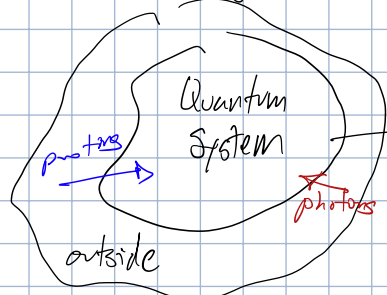 Quantum
System
photons
photons
outside